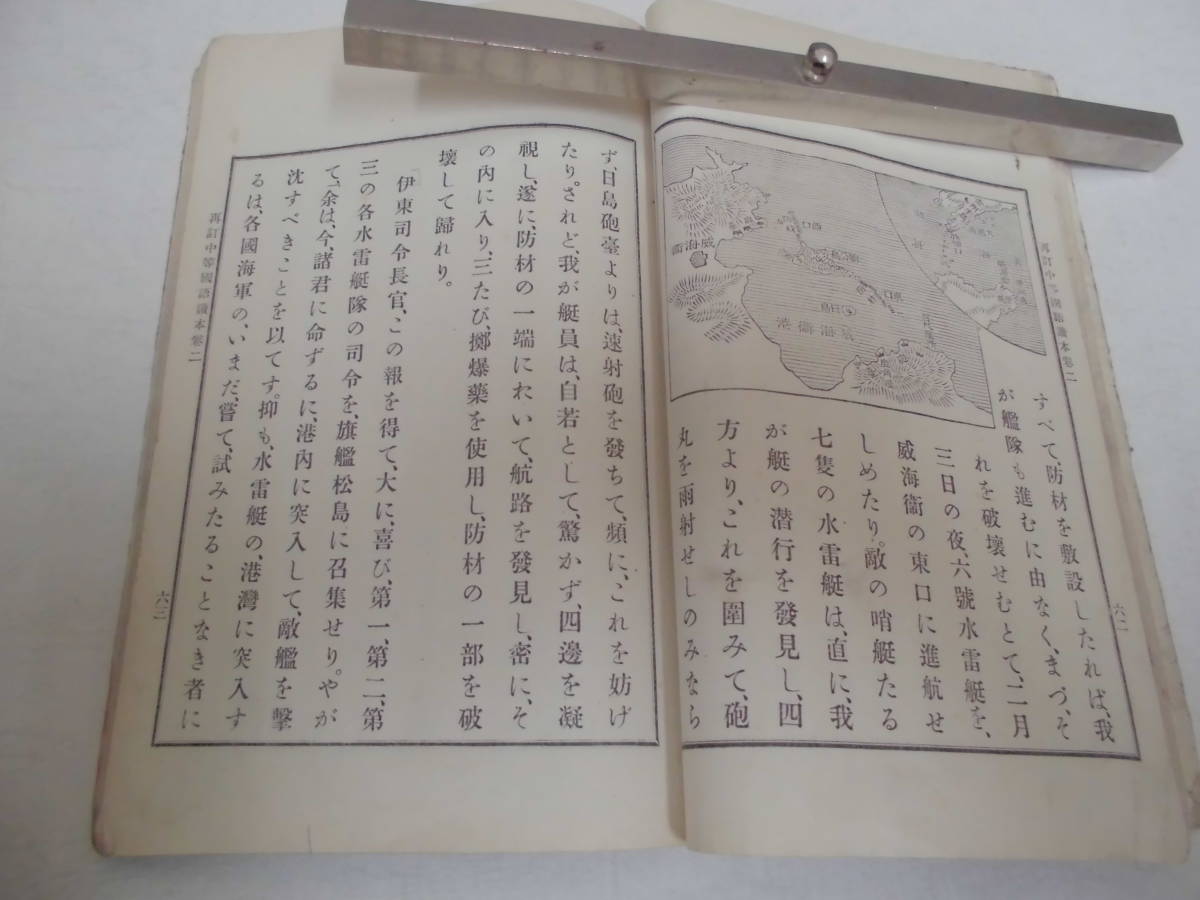 再訂中等國語讀本卷二
六二
威海衞
日島
威海衞港
すべて、防材を敷設したれば、我
が艦隊も進むに由なく、まづ、そ
れを破壞せむとて、二月
三日の夜、六號水雷艇を、
威海衞の東口に進航せ
しめたり。敵の哨艇たる
七隻の水雷艇は、直に、我
が艇の潛行を發見し、四
方より、これを圍みて、砲
丸を雨射せしのみなら
ず、日島砲臺よりは、速射砲を發ちて、頻に、これを妨げ
たり。されど、我が艇員は、自若として、驚かず、四邊を凝
視し、遂に、防材の一端において、航路を發見し、密に、そ
の內に入り、三たび、擲爆藥を使用し、防材の一部を破
壞して歸れり。
伊東司令長官、この報を得て、大に、喜び、第一、第二、第
三の各水雷艇隊の司令を、旗艦松島に召集せり。やが
て、「余は、今、諸君に命ずるに、港內に突入して、敵艦を擊
沈すべきことを以てす。抑も、水雷艇の、港灣に突入す
るは、各國海軍の、いまだ、嘗て、試みたることなき者に
再訂中等國語讀本卷二
六三